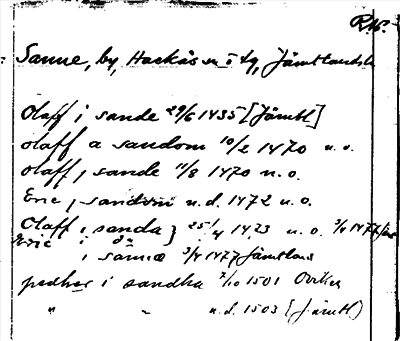 RA6.
Sanne, by, Hackås sn o tg, Jämtlands l.
Olaff i sande 29/6 1435 [Jämtl]
olaff a sandom 10/2 1470 u. o.
olaff, sande 11/8 1470 n. o.
Eric, sandom u.d. 1472 u. o.
Olaff i sanda } 25/4 1473 u. o. 3/4 1477 Jäm
Eric i do
i sanna 3/4 1477 Jämtland
pedher i sandha 2/10 1501 Oviken
" " u.d. 1503 (Jämtl)